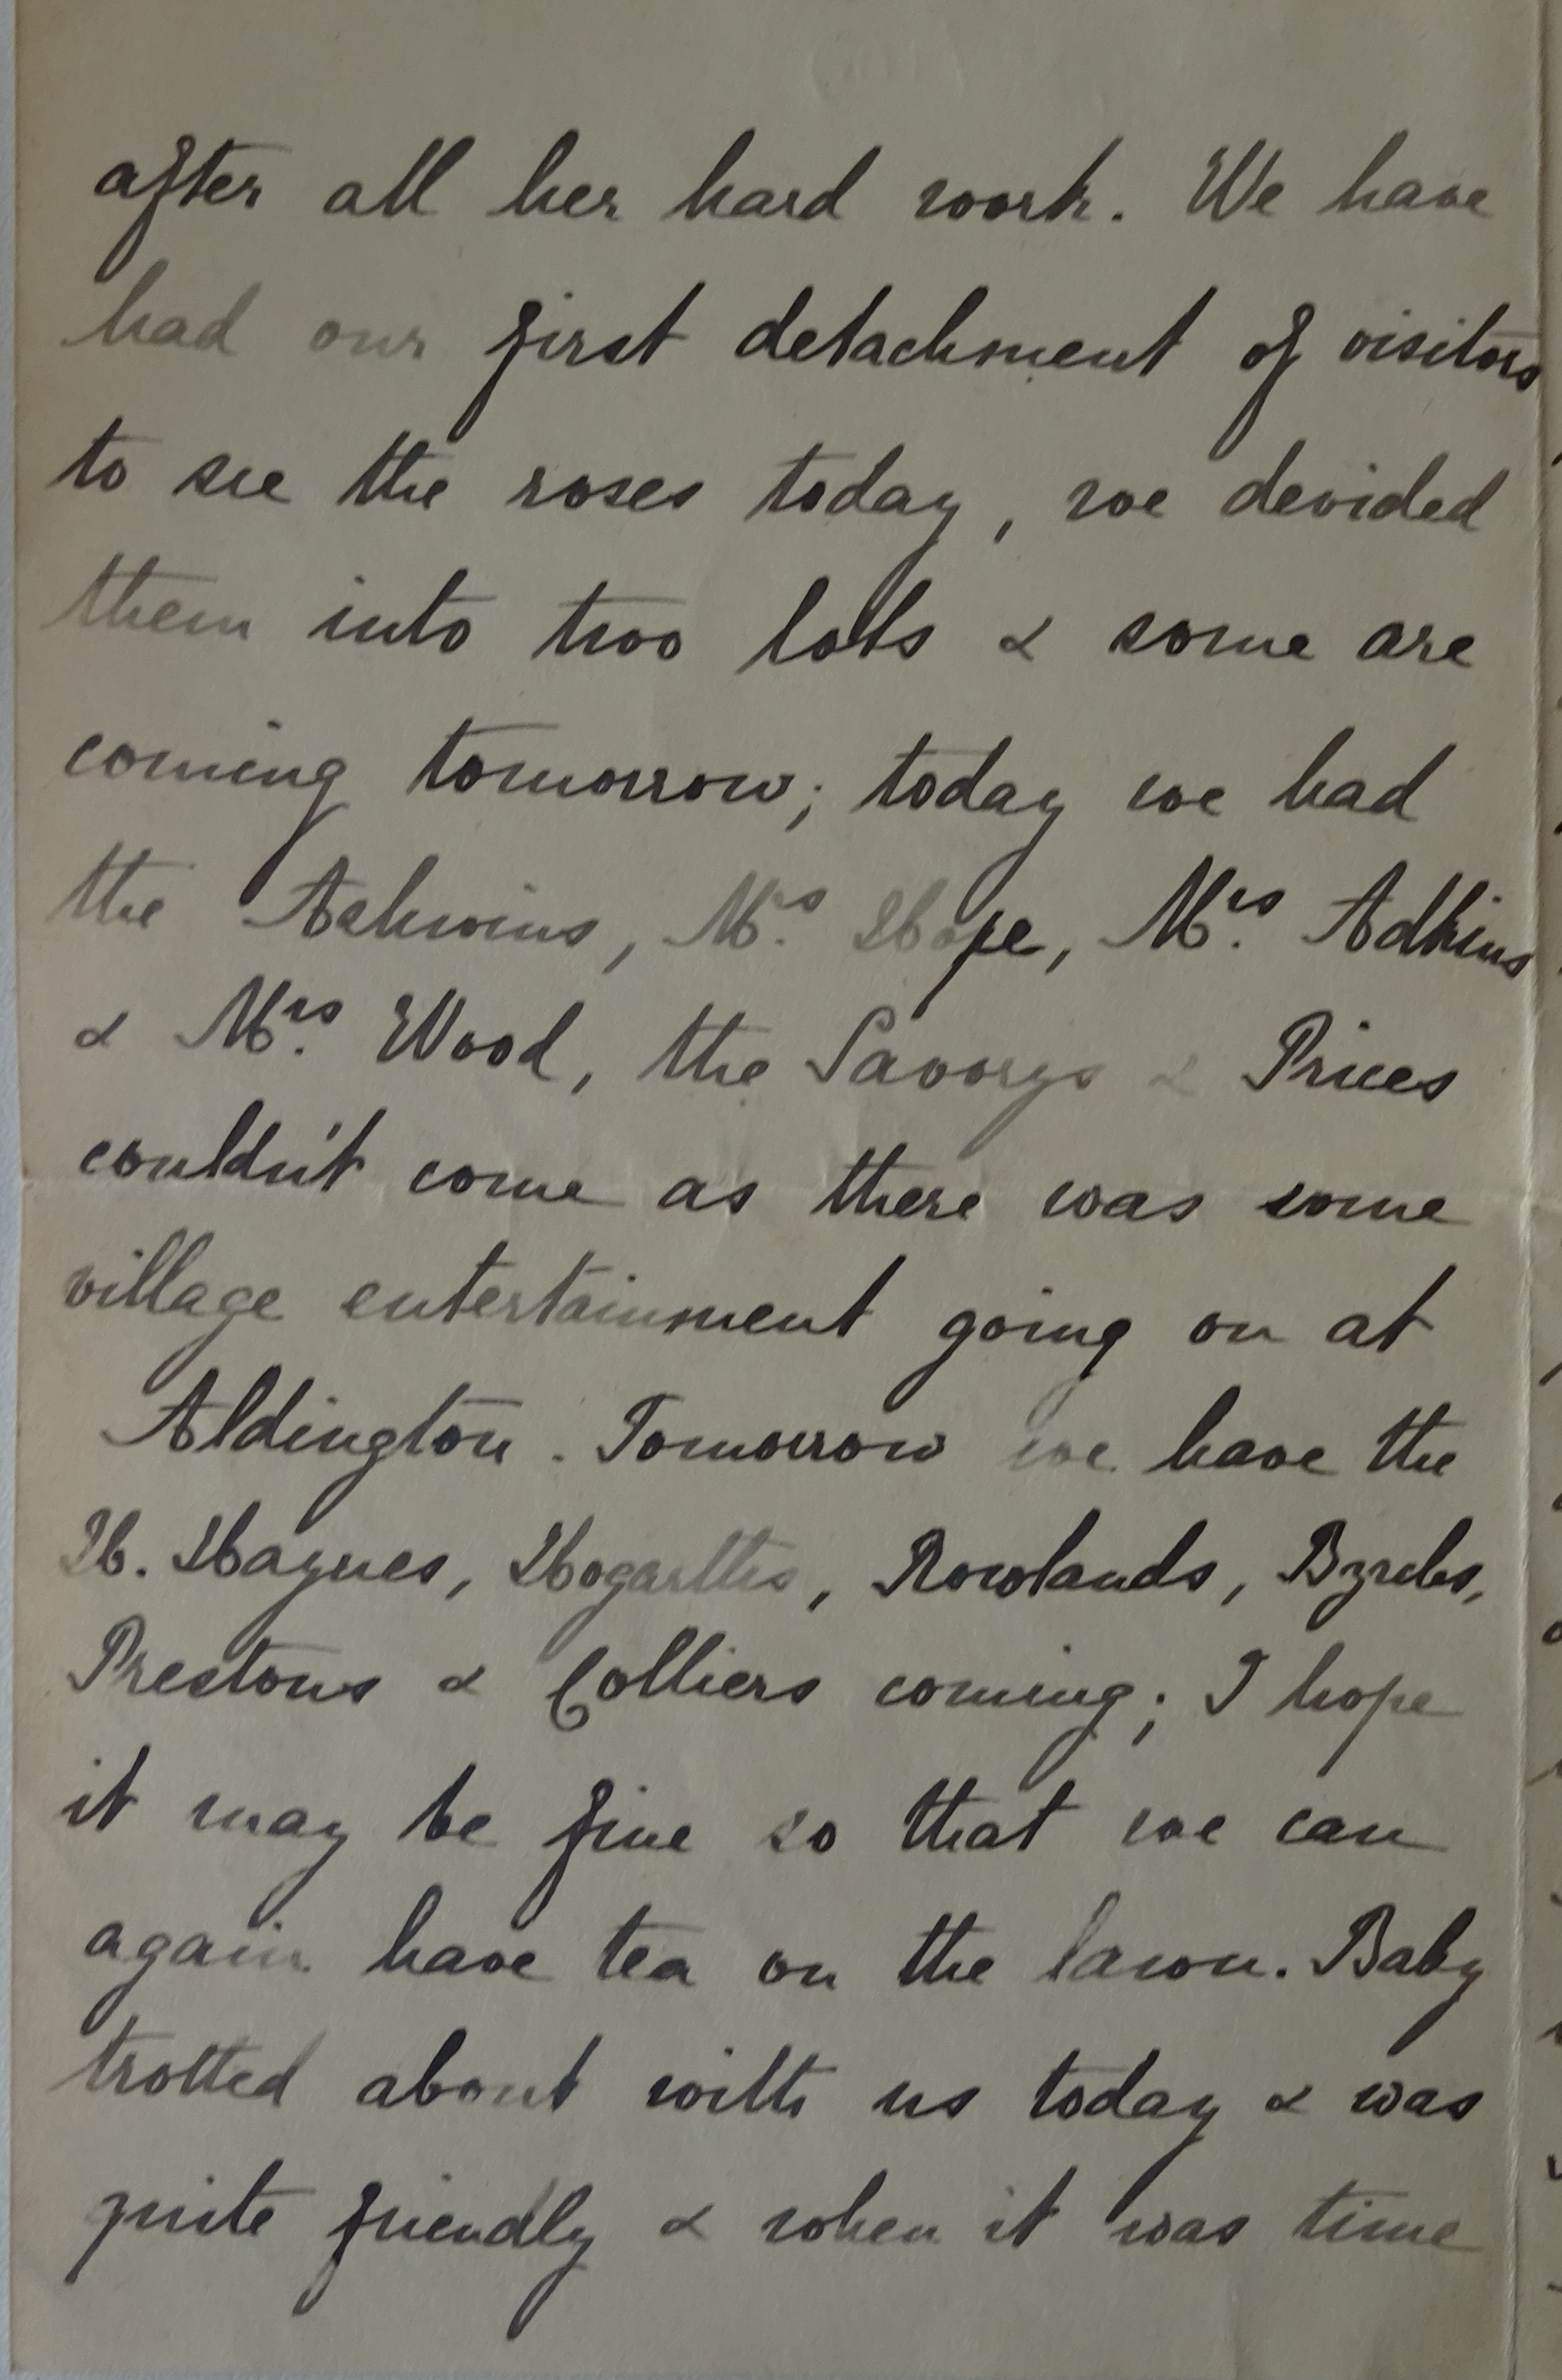 after all her hard work. We have
had our first detachment of visitors
to see the roses today, we devided
them into two lots & some are
coming tomorrow; today we had
the Ashwins, Mrs. Hope, Mrs. Adkins
& Mrs. Wood, the Savorys & Prices
couldn't come as there was some
village entertainment going on at
Aldington. Tomorrow we have the
H. Haynes, Hogarths, Rowlands, Byrchs,
Prestons & Colliers coming; I hope
it may be fine so that we can
again have tea on the lawn. Baby
trotted about with us today & was
quite friendly & when it was time